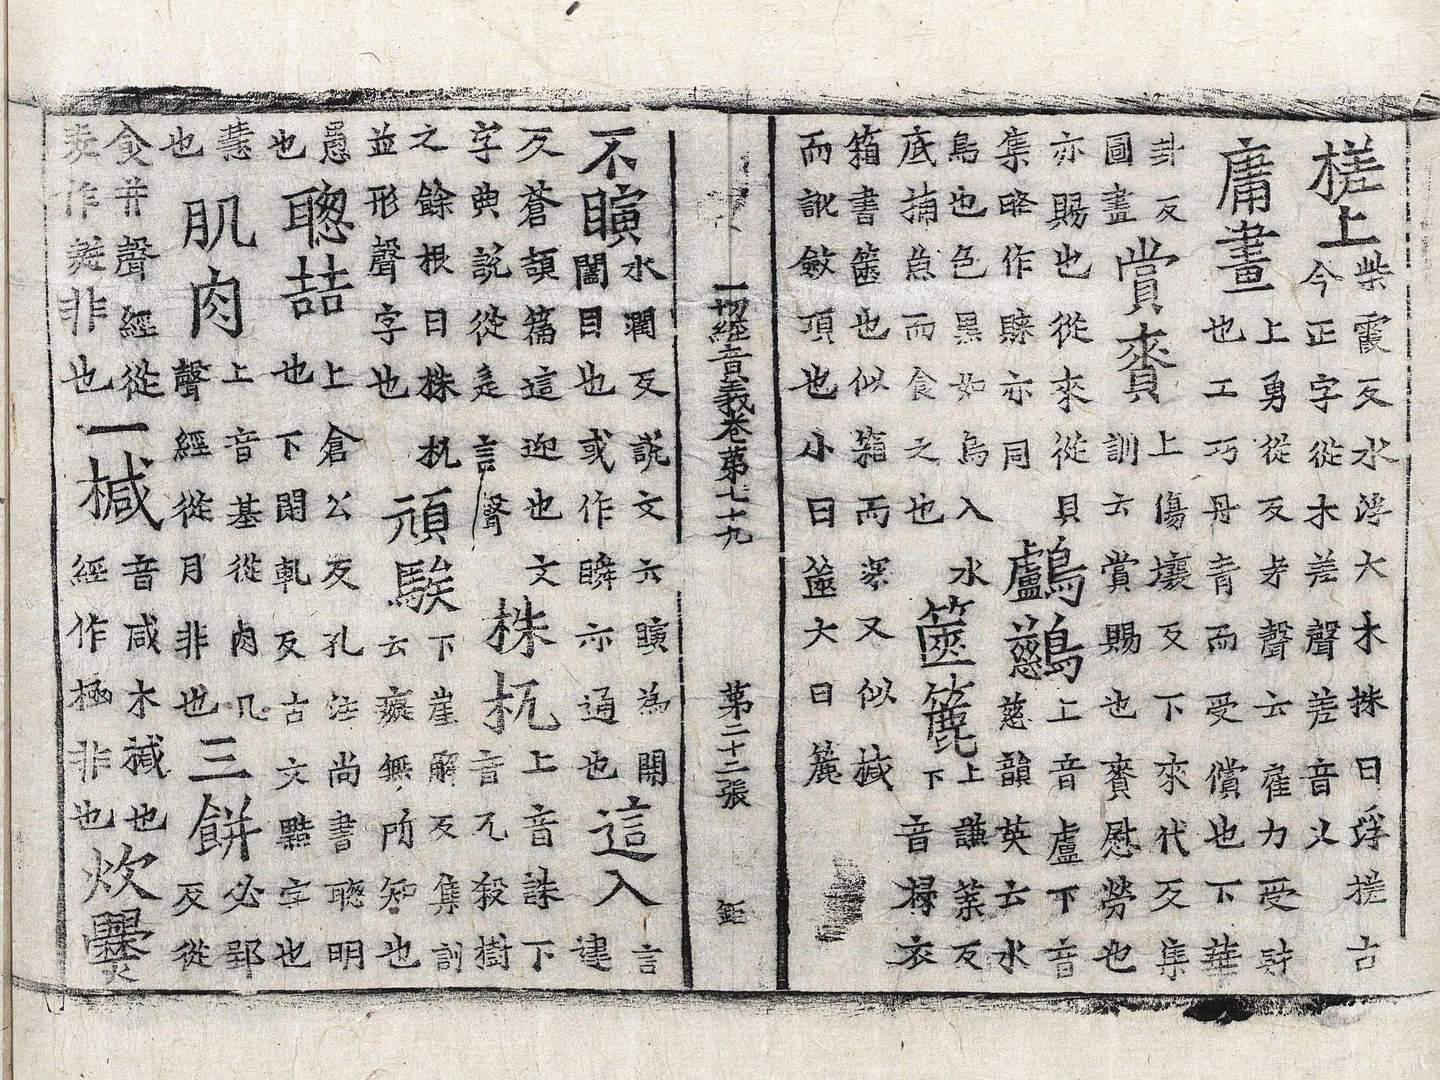 槎上柴霞反水浮大木抹曰浮槎古今正字從木差聲差音乂
庸畫上勇從反考聲云雇力受財也工巧丹青而受償也下華
卦反圖畫賞賚上傷壤反下來代反集訓云賞賜也賚慰勞也
亦賜也從來從貝集略作睞亦同鸕鶿上音盧下音慈韻英云水
鳥也色黑如烏入水底捕魚而食之也篋簏上謙葉反下音祿衣
箱書篋也似箱而深又似椷而訛斂頂也小曰篋大曰簏
一切經音義卷第七十九 第二十二張 鉅
不瞚水潤反說文云瞚為開闔目也或作瞬亦通也這入言建
反蒼頡篇這迎也文字典說從辵言聲株杌上音誅下音兀殺樹
之餘根曰株杌並形聲字也頑騃下崖解反集訓云癡無所知也
愚也聰喆上倉公反孔注尚書聰明也下閑軋反古文黠字也
慧也肌肉上音基從肉几聲經從月非也三餅必郢反從
食并聲經從麦作非也一椷音咸木椷也經作極非也炊爨